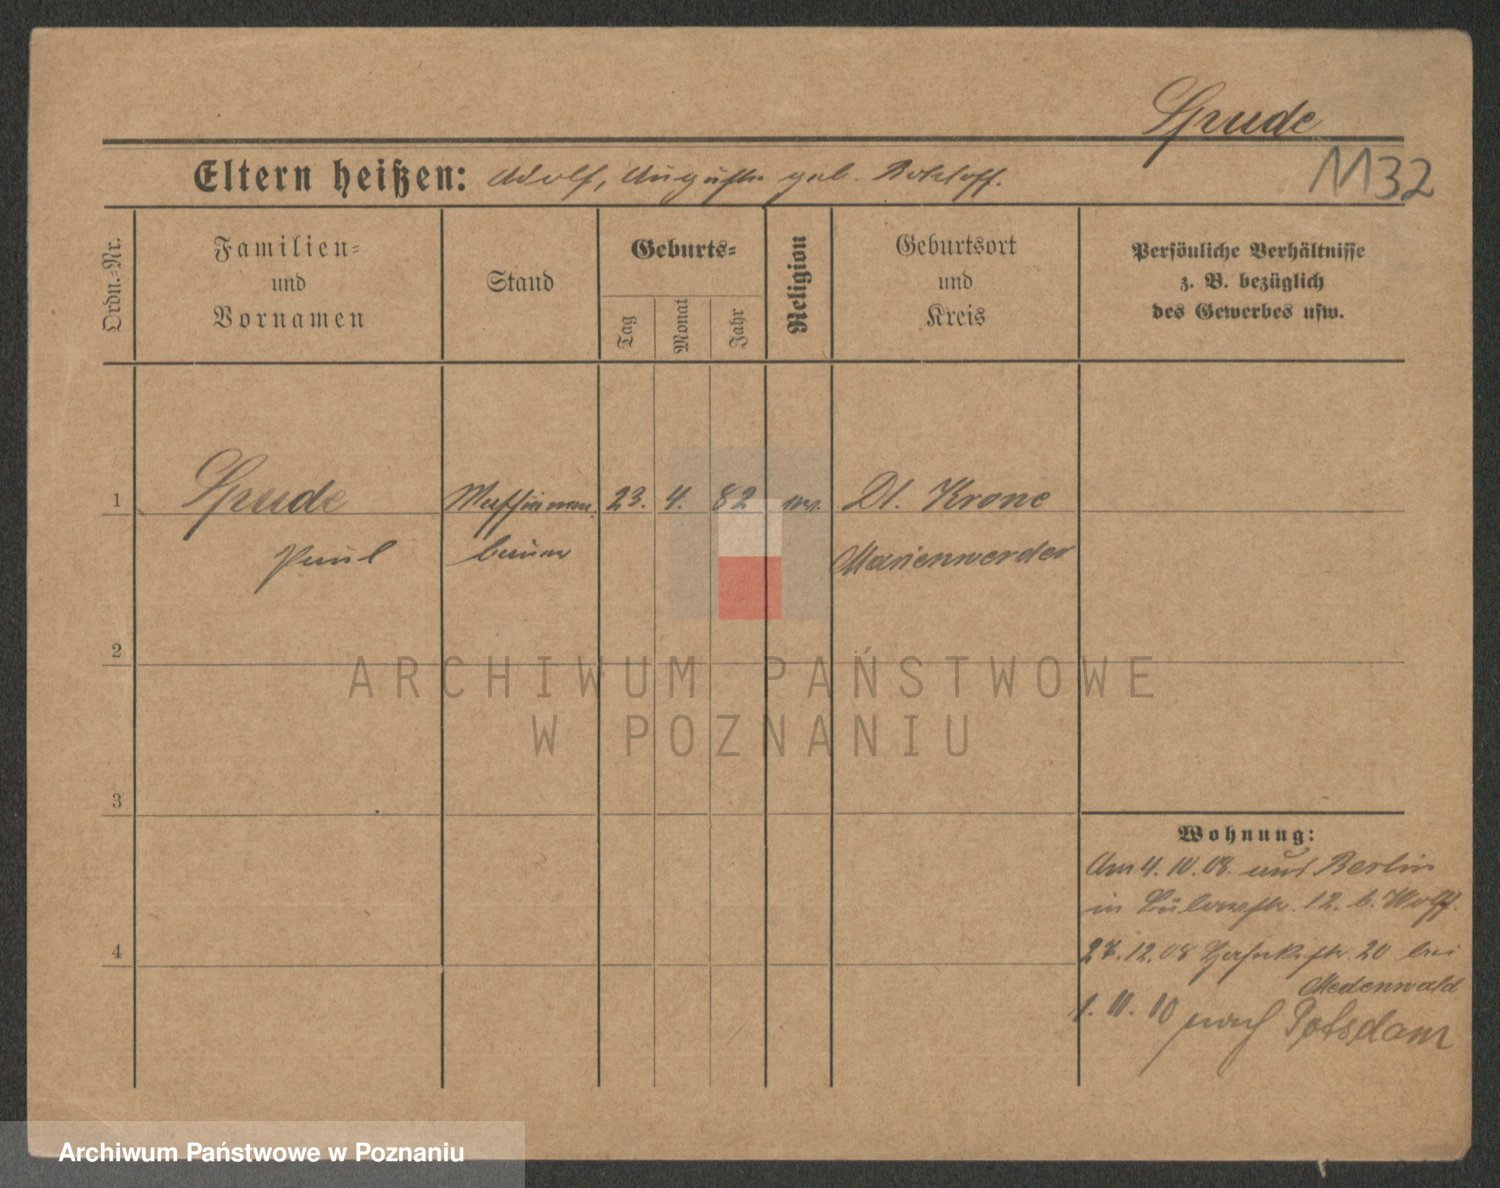 Spude
1132
Eltern heißen: Adolf, Auguste geb. Roloff.
Ordn.-Nr.
Familien-
und
Vornamen
Stand
Geburts-
Tag
Monat
Jahr
Religion
Geburtsort
und
Kreis
Persönliche Verhältnisse
z. B. bezüglich
des Gewerbes usw.
1 Spude 23. 4. 82 Dt. Krone
Paul bauer Marienwerder
2
ARCHIWUM PAŃSTWOWE
W POZNANIU
3
Wohnung:
Am 4. 10. 08. aus Berlin
in Bülowstr. 12. b. Wolff.
4
27. 12. 08 str. 20 bei
Medenwald
1. 11. 10 nach Potsdam
Archiwum Państwowe w Poznaniu